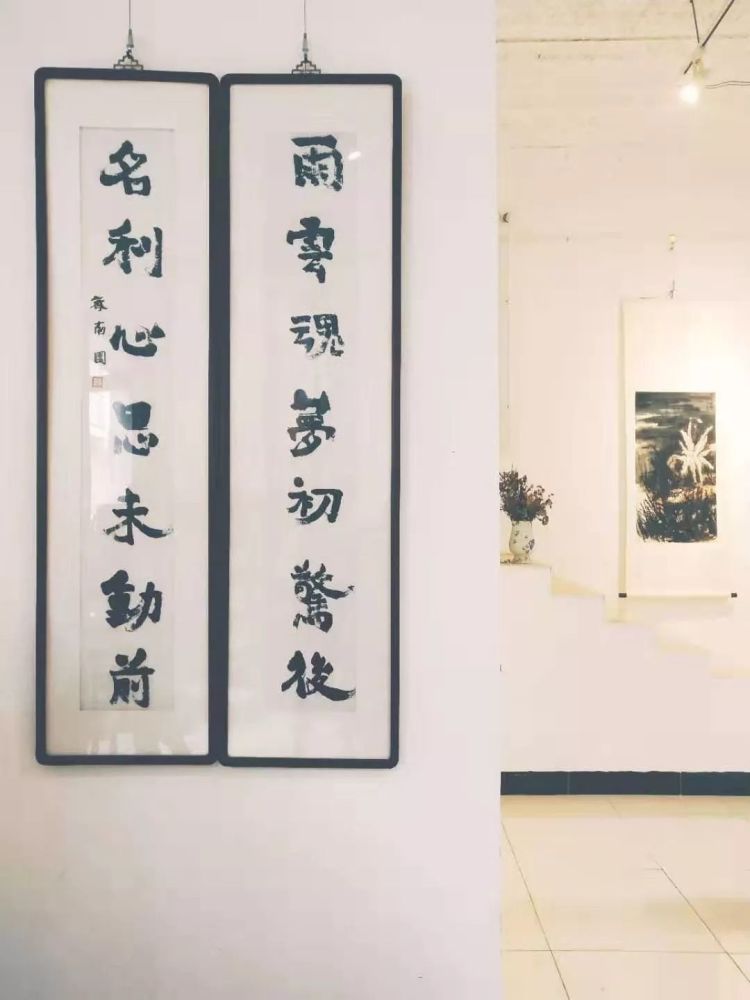 雨雲魂夢初驚後
名利心思未動前